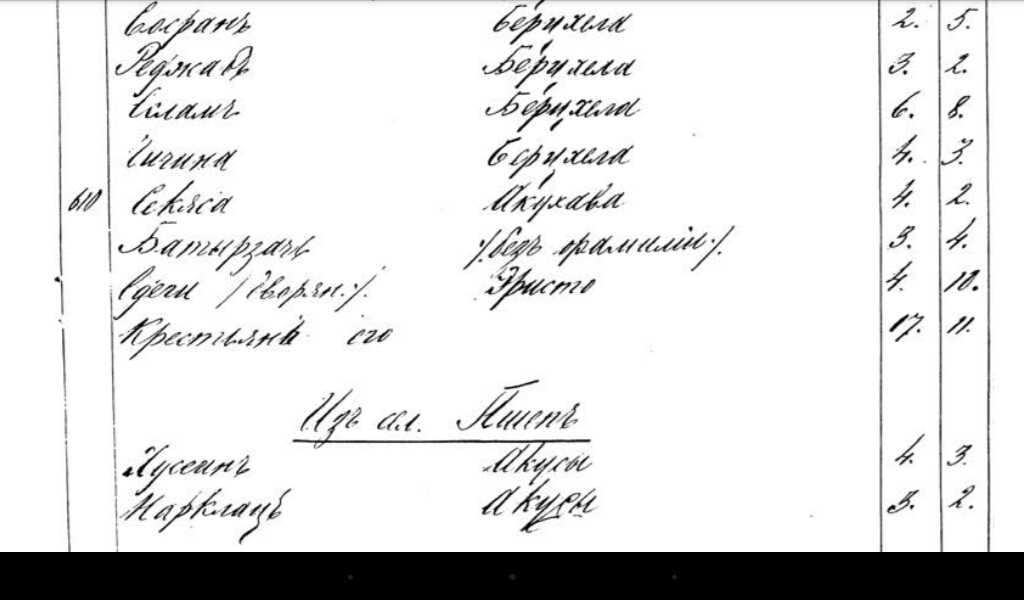 Сосранъ Берихела 2. 5.
Реджабъ Берихела 3. 2.
Исламъ Берихела 6. 8.
Чичина Берихела 4. 3.
610 Секяса Акухава 4. 2.
Батырзачъ /.безъ фамиліи./ 3. 4.
Едеги /дворян./ Эристо 4. 10.
Крестьянъ его 17. 11.
Изъ сел. Пшепъ
Хусеинъ Акусы 4. 3.
Наркладъ Акусы 3. 2.